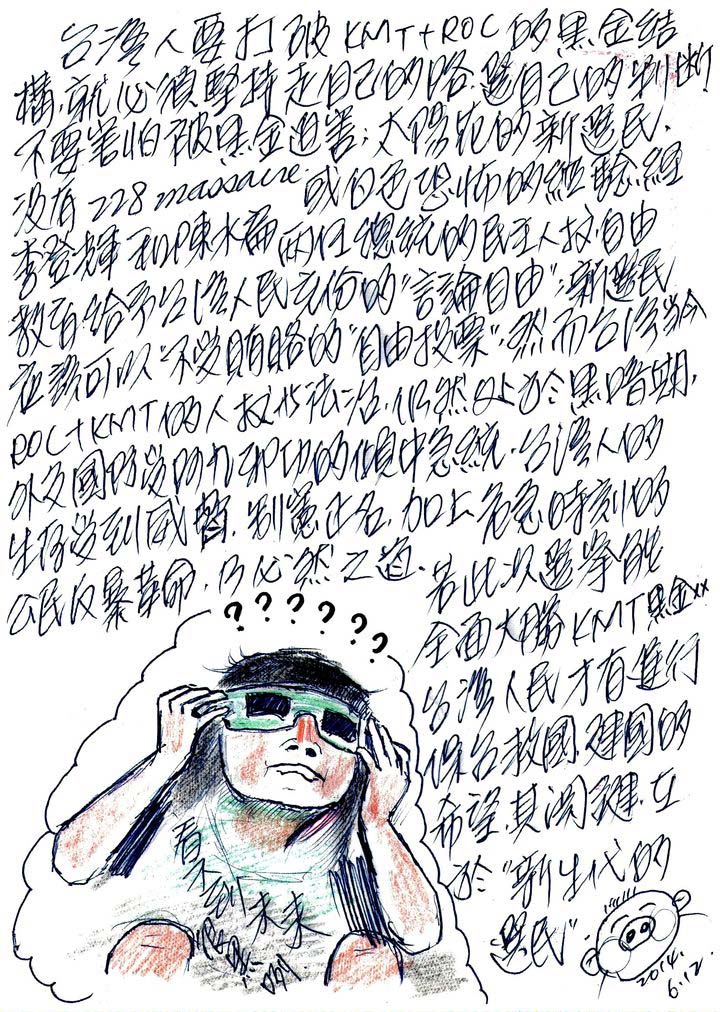 台灣人要打破KMT+ROC的黑金結
構,就必須堅持走自己的路,選自己的判斷
不要害怕被黑金迫害;太陽花的新選民,
沒有228 massacre 或白色恐怖的經驗.經
李登輝和陳水扁兩任總統的民主人权自由
教育,給予台灣人民充份的"言論自由";新選民
應該可以"不受賄賂的"自由投票";然而台灣當今
ROC+KMT的人权状法治,仍然处於黑暗期,
外交國防受阿九 的傾中急統,台灣人的
生存受到威脅,制憲正名,加上危急時刻的
公民反暴革命,乃必然之道.
若此次選挙能
全面大勝KMT黑金xx
台灣人民才有進行
保台救國建國的
希望,其関鍵,在
於"新生代的
選民"
? ? ? ? ? ?
看不到未来
2014.
6.12.